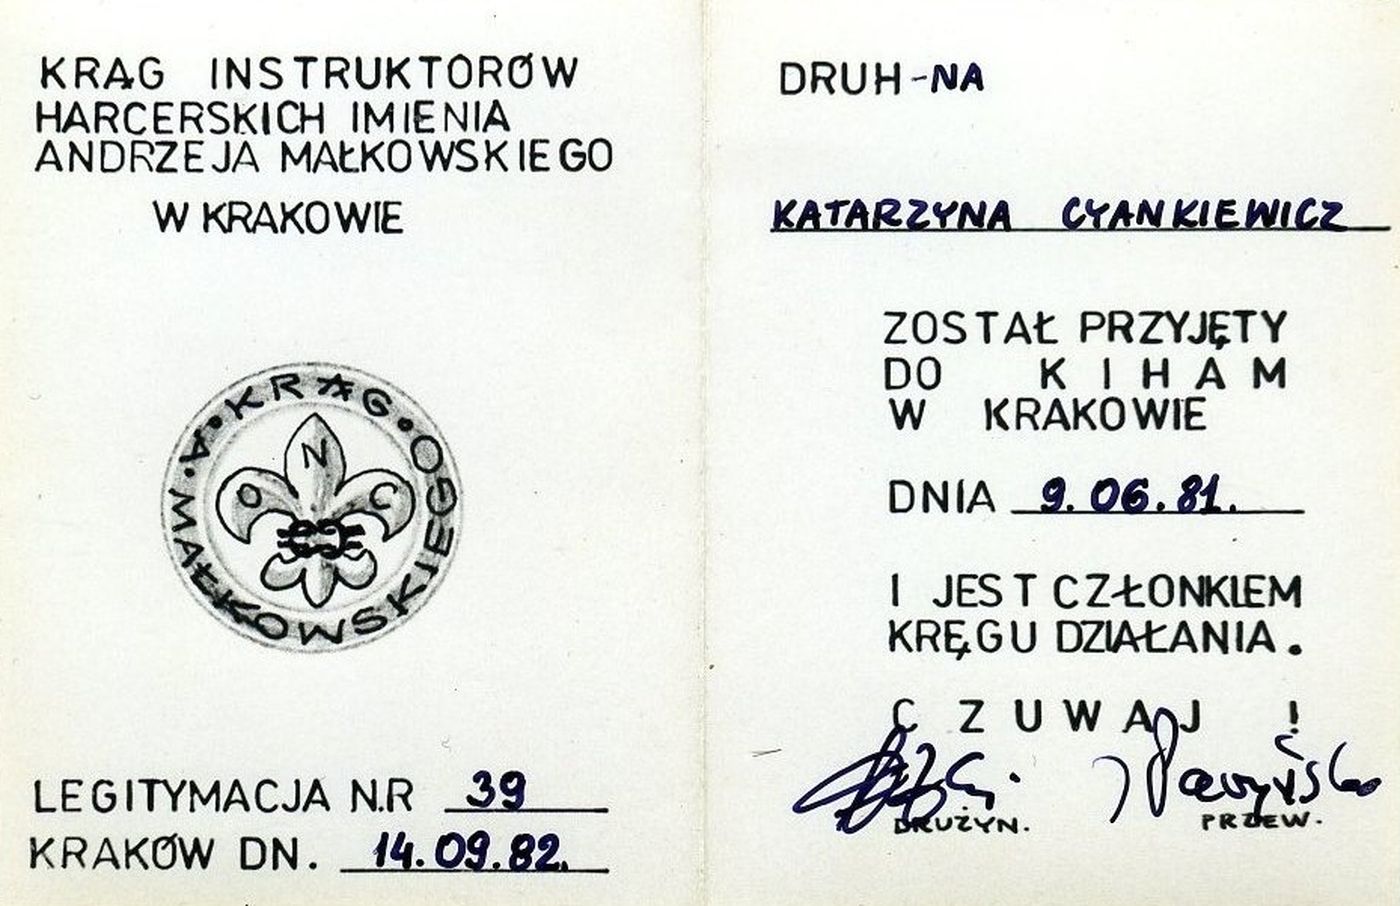 KRĄG INSTRUKTORÓW
HARCERSKICH IMIENIA
ANDRZEJA MAŁKOWSKIEGO
W KRAKOWIE
A. MAŁKOWSKIEGO • KRĄG •
O N C
LEGITYMACJA N.R 39
KRAKÓW DN. 14.09.82.
DRUH-NA
KATARZYNA CYANKIEWICZ
ZOSTAŁ PRZYJĘTY
DO KIHAM
W KRAKOWIE
DNIA 9.06.81.
I JEST CZŁONKIEM
KRĘGU DZIAŁANIA.
CZUWAJ !
DRUŻYN. PRZEW.